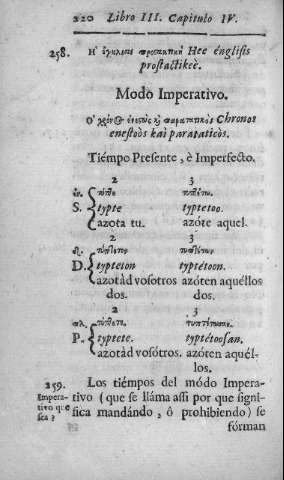 220 Libro III. Capitulo IV.
258. Η' ἔγκλισις προστακτικὴ Hee énglisis
prostactikeè.
Modo Imperativo.
Ο' χρόνος ἐνεστὼς καὶ παρατατικὸς Chronos
enestoòs kaì paratatìcòs.
Tiémpo Presente, è Imperfecto.
2 3
ἑν. τύπτε τυπτέτω.
S. typte typtetoo.
azota tu. azóte aquel.
2 3
δυ. τύπτετον τυπτέτων.
D. typteton typtétoon.
azotàd vosotros azóten aquéllos
dos. dos.
2 3
πλ. τύπτετε. τυπτέτωσαν.
P. typtete. typtétoosan.
azotàd vosótros. azóten aquél-
los.
259. Los tiémpos del módo Impera-
Impera- tivo (que se lláma assi por que signi-
tivo que fica mandándo, ô prohibiendo) se
sea?
fórman